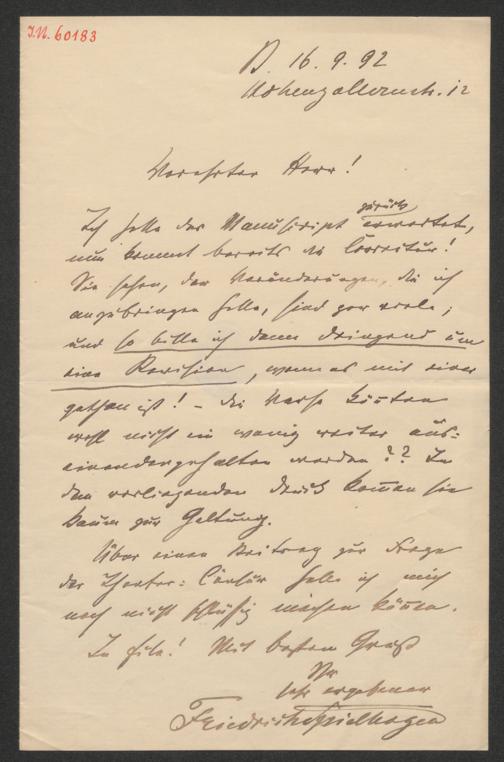 I.N. 60183
B. 16. 9. 92
Hohenzollernstr. 12
Verehrter Herr!
zurück
Ich hatte das Manuscript erwartet,
nun kommt bereits die Correctur!
Sie sehen, der Veränderungen, die ich
anzubringen hatte, sind gar viele;
und so bitte ich denn dringend um
eine Revision, wenn es mit einer
gethan ist! – Die Verse könten
wohl nicht ein wenig weiter aus=
einandergehalten werden?? In
dem vorliegenden Druck komen sie
kaum zur Geltung.
Über einen Beitrag zur Frage
der Theater=Censur habe ich mich
noch nicht schlüssig machen können.
In Eile! Mit bestem Gruß
Ihr
sehr ergebener
Friedrich Spielhagen